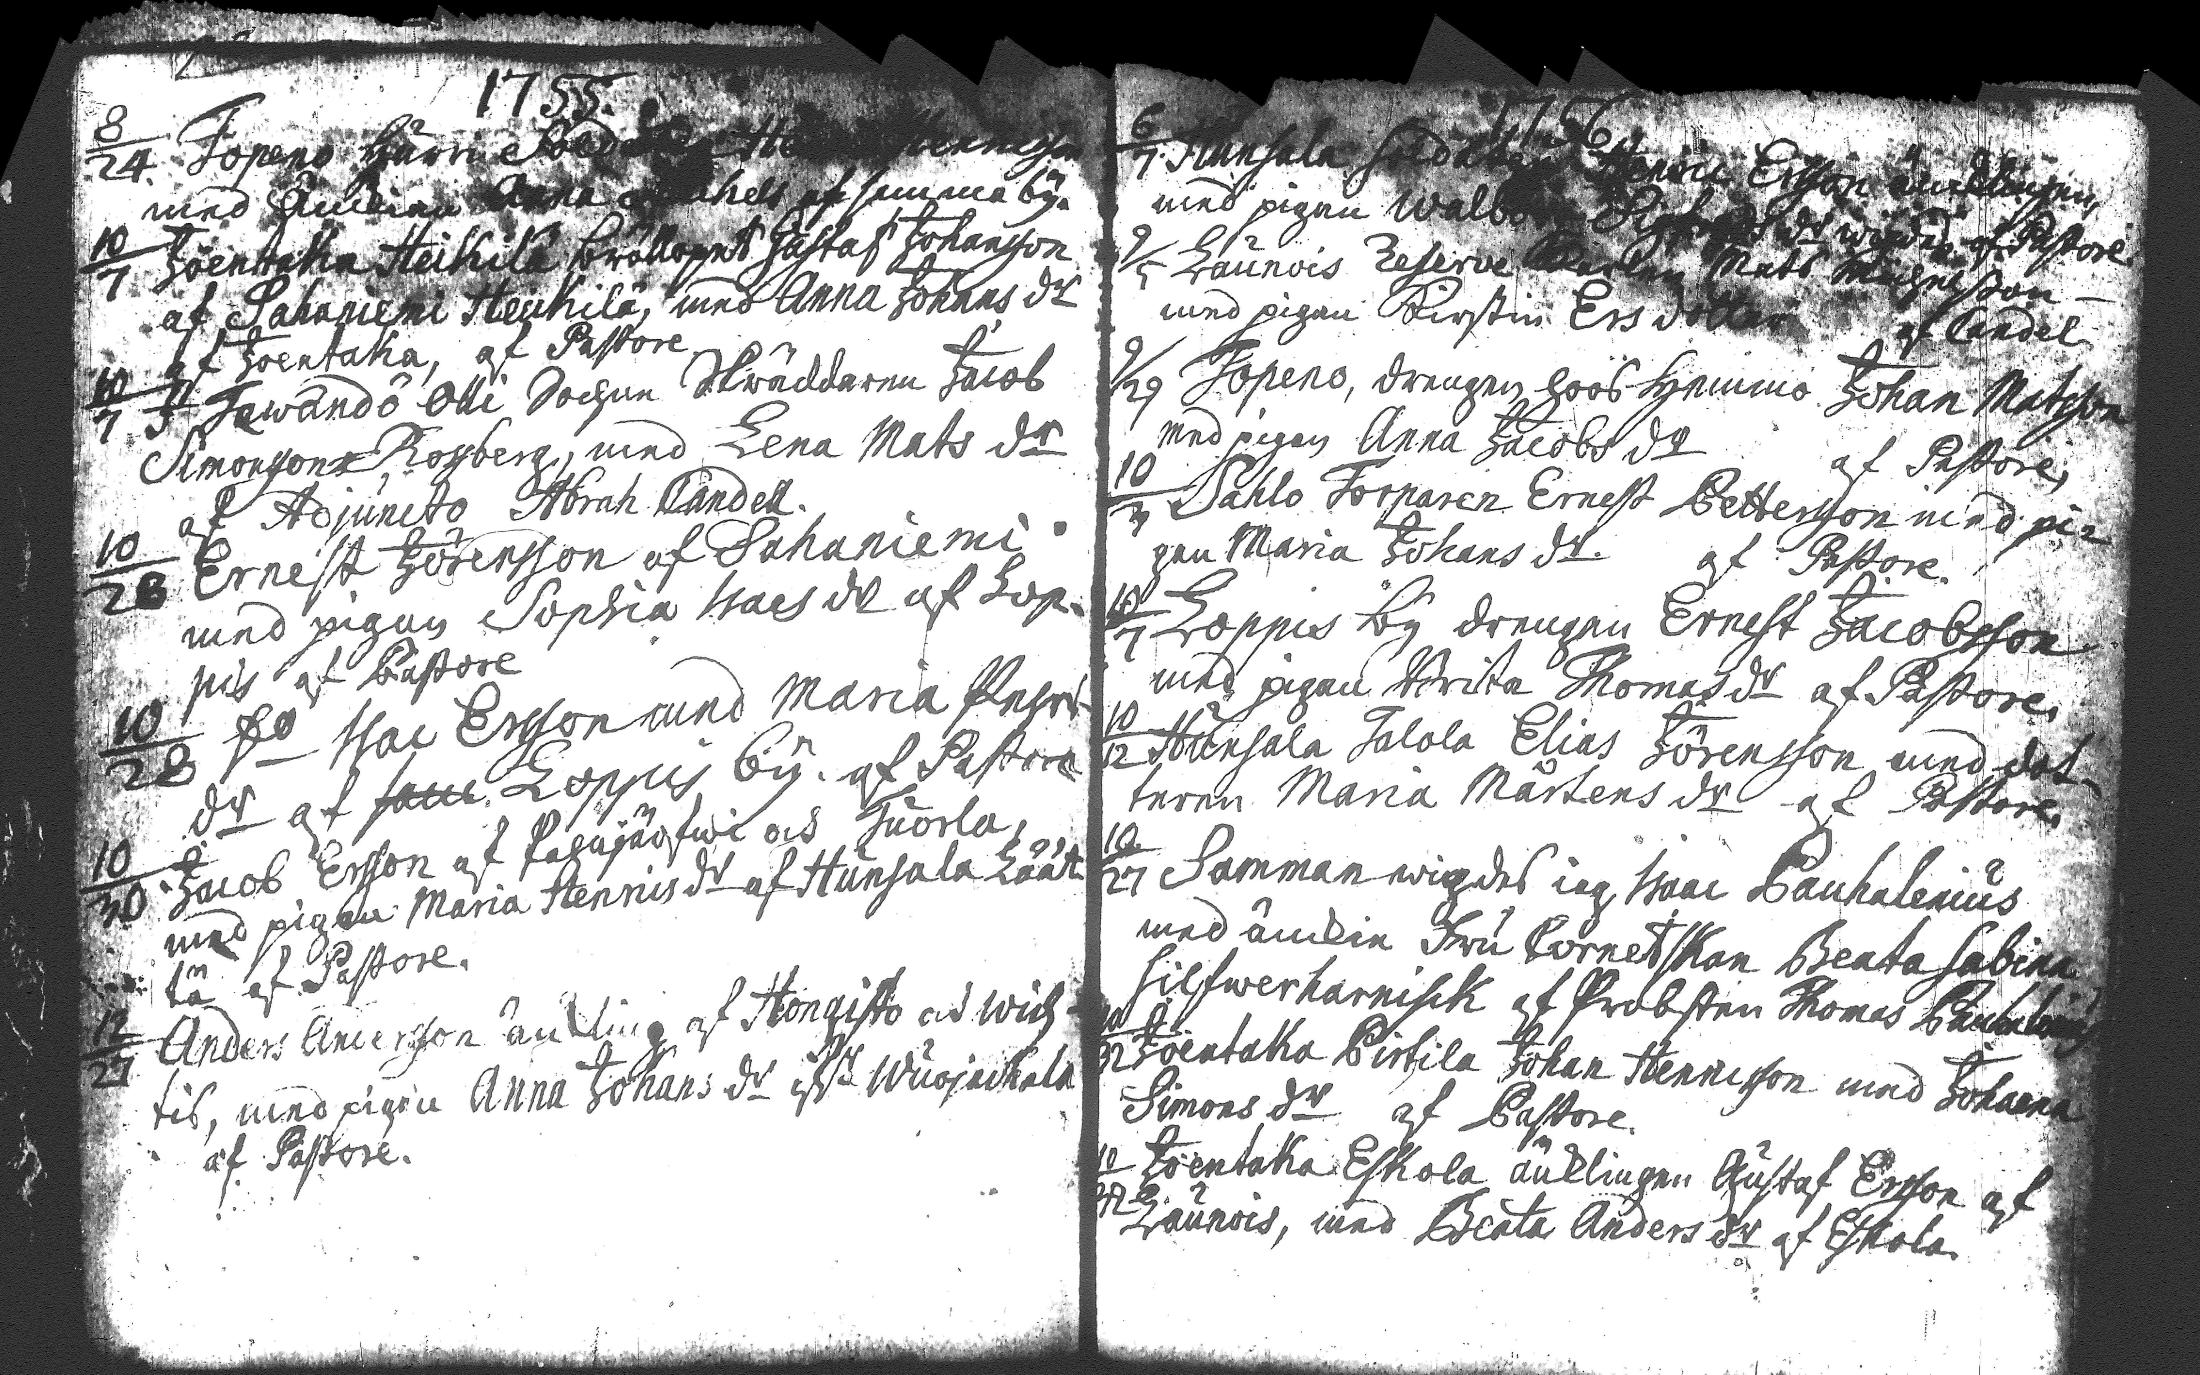 1755.
8/24. Topeno Soldaten Hennrisson
med Änkian Anna Michels af samma bÿ.
10/7 Joentaka Heikilä Gustaf Johansson
af Sahaniemi Heikilä, med Anna Johans dr
af Joentaka, af Pastore
10/7 Tewändö Olli Sochne Skräddaren Jacob
Simonsson Rosberg, med Lena Mats dr
af Adjuncto Abrah Candel.
10/28 Ernest Jörensson af Sahaniemi
med pigan Sophia Isacs dr af Lop-
pis af Pastore
10/28 Isac Ersson med Maria
dr af Loppis bÿ. af Pastore
10/30 Jacob Ersson af Tuorla,
med pigan Maria Henrics dr af Hunsala Läät
tä af Pastore.
12/27 Anders Andersson änkling af Hongisto ad Wich-
tis, med pigan Anna Johans dr
af Pastore.
1756.
6/7. Hunsala Soldaten Henric Ersson änklingen,
med pigan Walborg dr wigde af Pastore
9/5 Launois Reserve Karlen Mats
med pigan Kirstin Ers dotter af Candel
9/29 Topeno, drengen Johan Matsson
med pigan Anna Jacobs dr af Pastore,
10/3 Sahlo Torparen Ernest Pettersson med pi-
gan Maria Johans dr. af Pastore.
10/7 Loppis bÿ drengen Ernest Jacobsson
med pigan Brita Thomas dr af Pastore.
10/12 Hunsala Talola Elias Jörensson med dot-
teren Maria Mårtens dr af Pastore.
10/27 Sammanwigdes iag Isaac Pauhalenius
med änkin Fru Cornetskan Beata Sabina
Silfwerharnisck af Probsten Thomas Pauhalenius
Joentaka Pirtilä Johan Hennrisson med Johanna
Simons dr af Pastore.
Joentaka Eskola änklingen Gustaf Ersson af
Launois, med Beata Anders dr af Eskola.